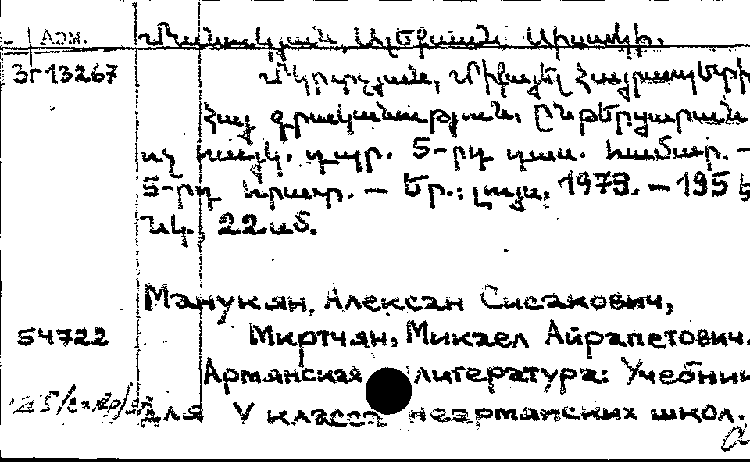 Арм.
Մանուկյան, Ալեքսան Սիսակի.
3г13267 Մկրտչյան, Միքայել Հայրապետի
Հայ գրականություն. Ընթերցարան
ոչ հայկ. դպր. 5-րդ դաս. համար. —
5-րդ հրատ. — Եր.: Լույս, 1973. — 195 է
նկ. 22սմ.
Манукян, Алексан Сисакович,
54722 Мкртчян, Микаел Айрапетович.
Армянская литература: Учебник
для V класса неармянских школ.